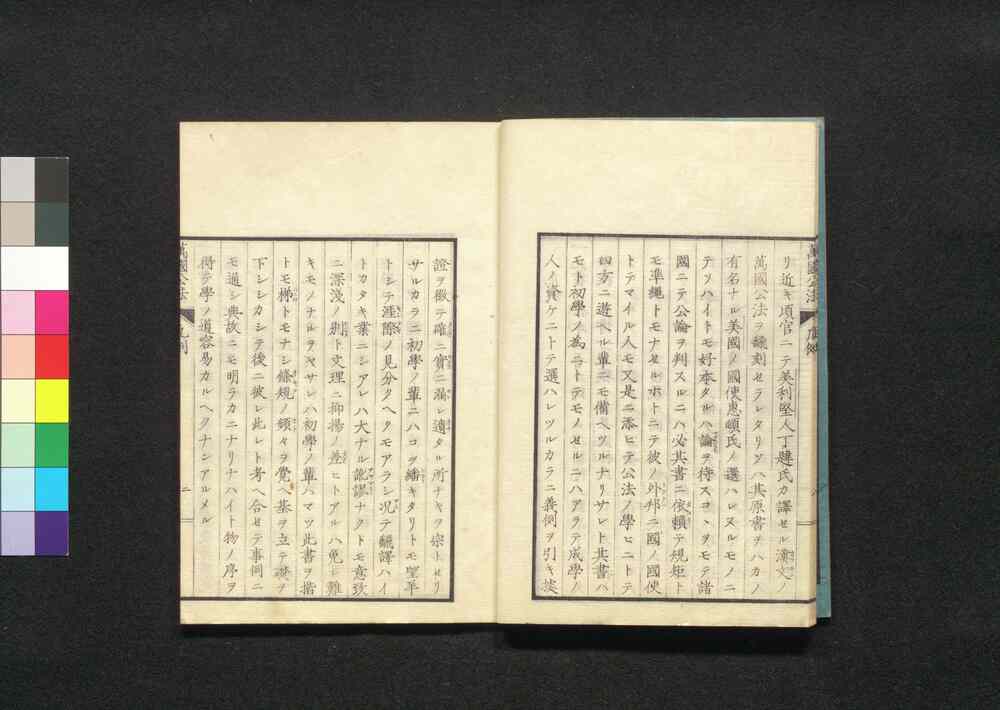 リ近キ頃官ニテ美利堅人丁韙氏カ譯セル漢文ノ
萬國公法ヲ鏤刻セラレタリソハ其原書ヲハカノ
有名ナル美國ノ國使惠頓氏ノ選ハレヌルモノニ
テソハイトモ好本タルハ論ヲ待スコヽヲモテ諸
國ニテ公論ヲ判スルニハ必其書ニ依賴テ規矩ト
モ準繩トモナセルホトニテ彼ノ外邦ニ國ノ國使
トテマイル人モ又是ニ添ヒテ公法ノ學ヒニトテ
四方ニ遊ヘル輩ニモ備ヘツルナリサレト其書ハ
モト初學ノ為ニトテモノセルニハアラテ成學ノ
人ノ資ケニトテ選ハレツルカラニ義例ヲ引キ援
證ヲ徵テ確ニ實ニ漏レ遺タル所ナキヲ宗トセリ
サルカラニ初學ノ輩ニハコヲ繙キタリトモ望洋
トシテ涯際ノ見分タヘクモアラシ况テ飜譯ハイ
トカタキ業ニシアレハ大ナル訛謬ナクトモ意致
ニ深淺ノ別ト文理ニ抑揚ノ差ヒトアルハ免レ難
キモノナルヲヤサレハ初學ノ輩ハマツ此書ヲ楷
トモ梯トモナシ條規ノ領々ヲ覺ヘ基ヲ立テ礎ヲ
下シシカシテ後ニ彼レ此レト考ヘ合セテ事例ニ
モ通シ典故ニモ明ラカニナリナハイト物ノ序ヲ
得テ學ノ道容易カルヘクナンアルメル
萬國公法
凡例
二